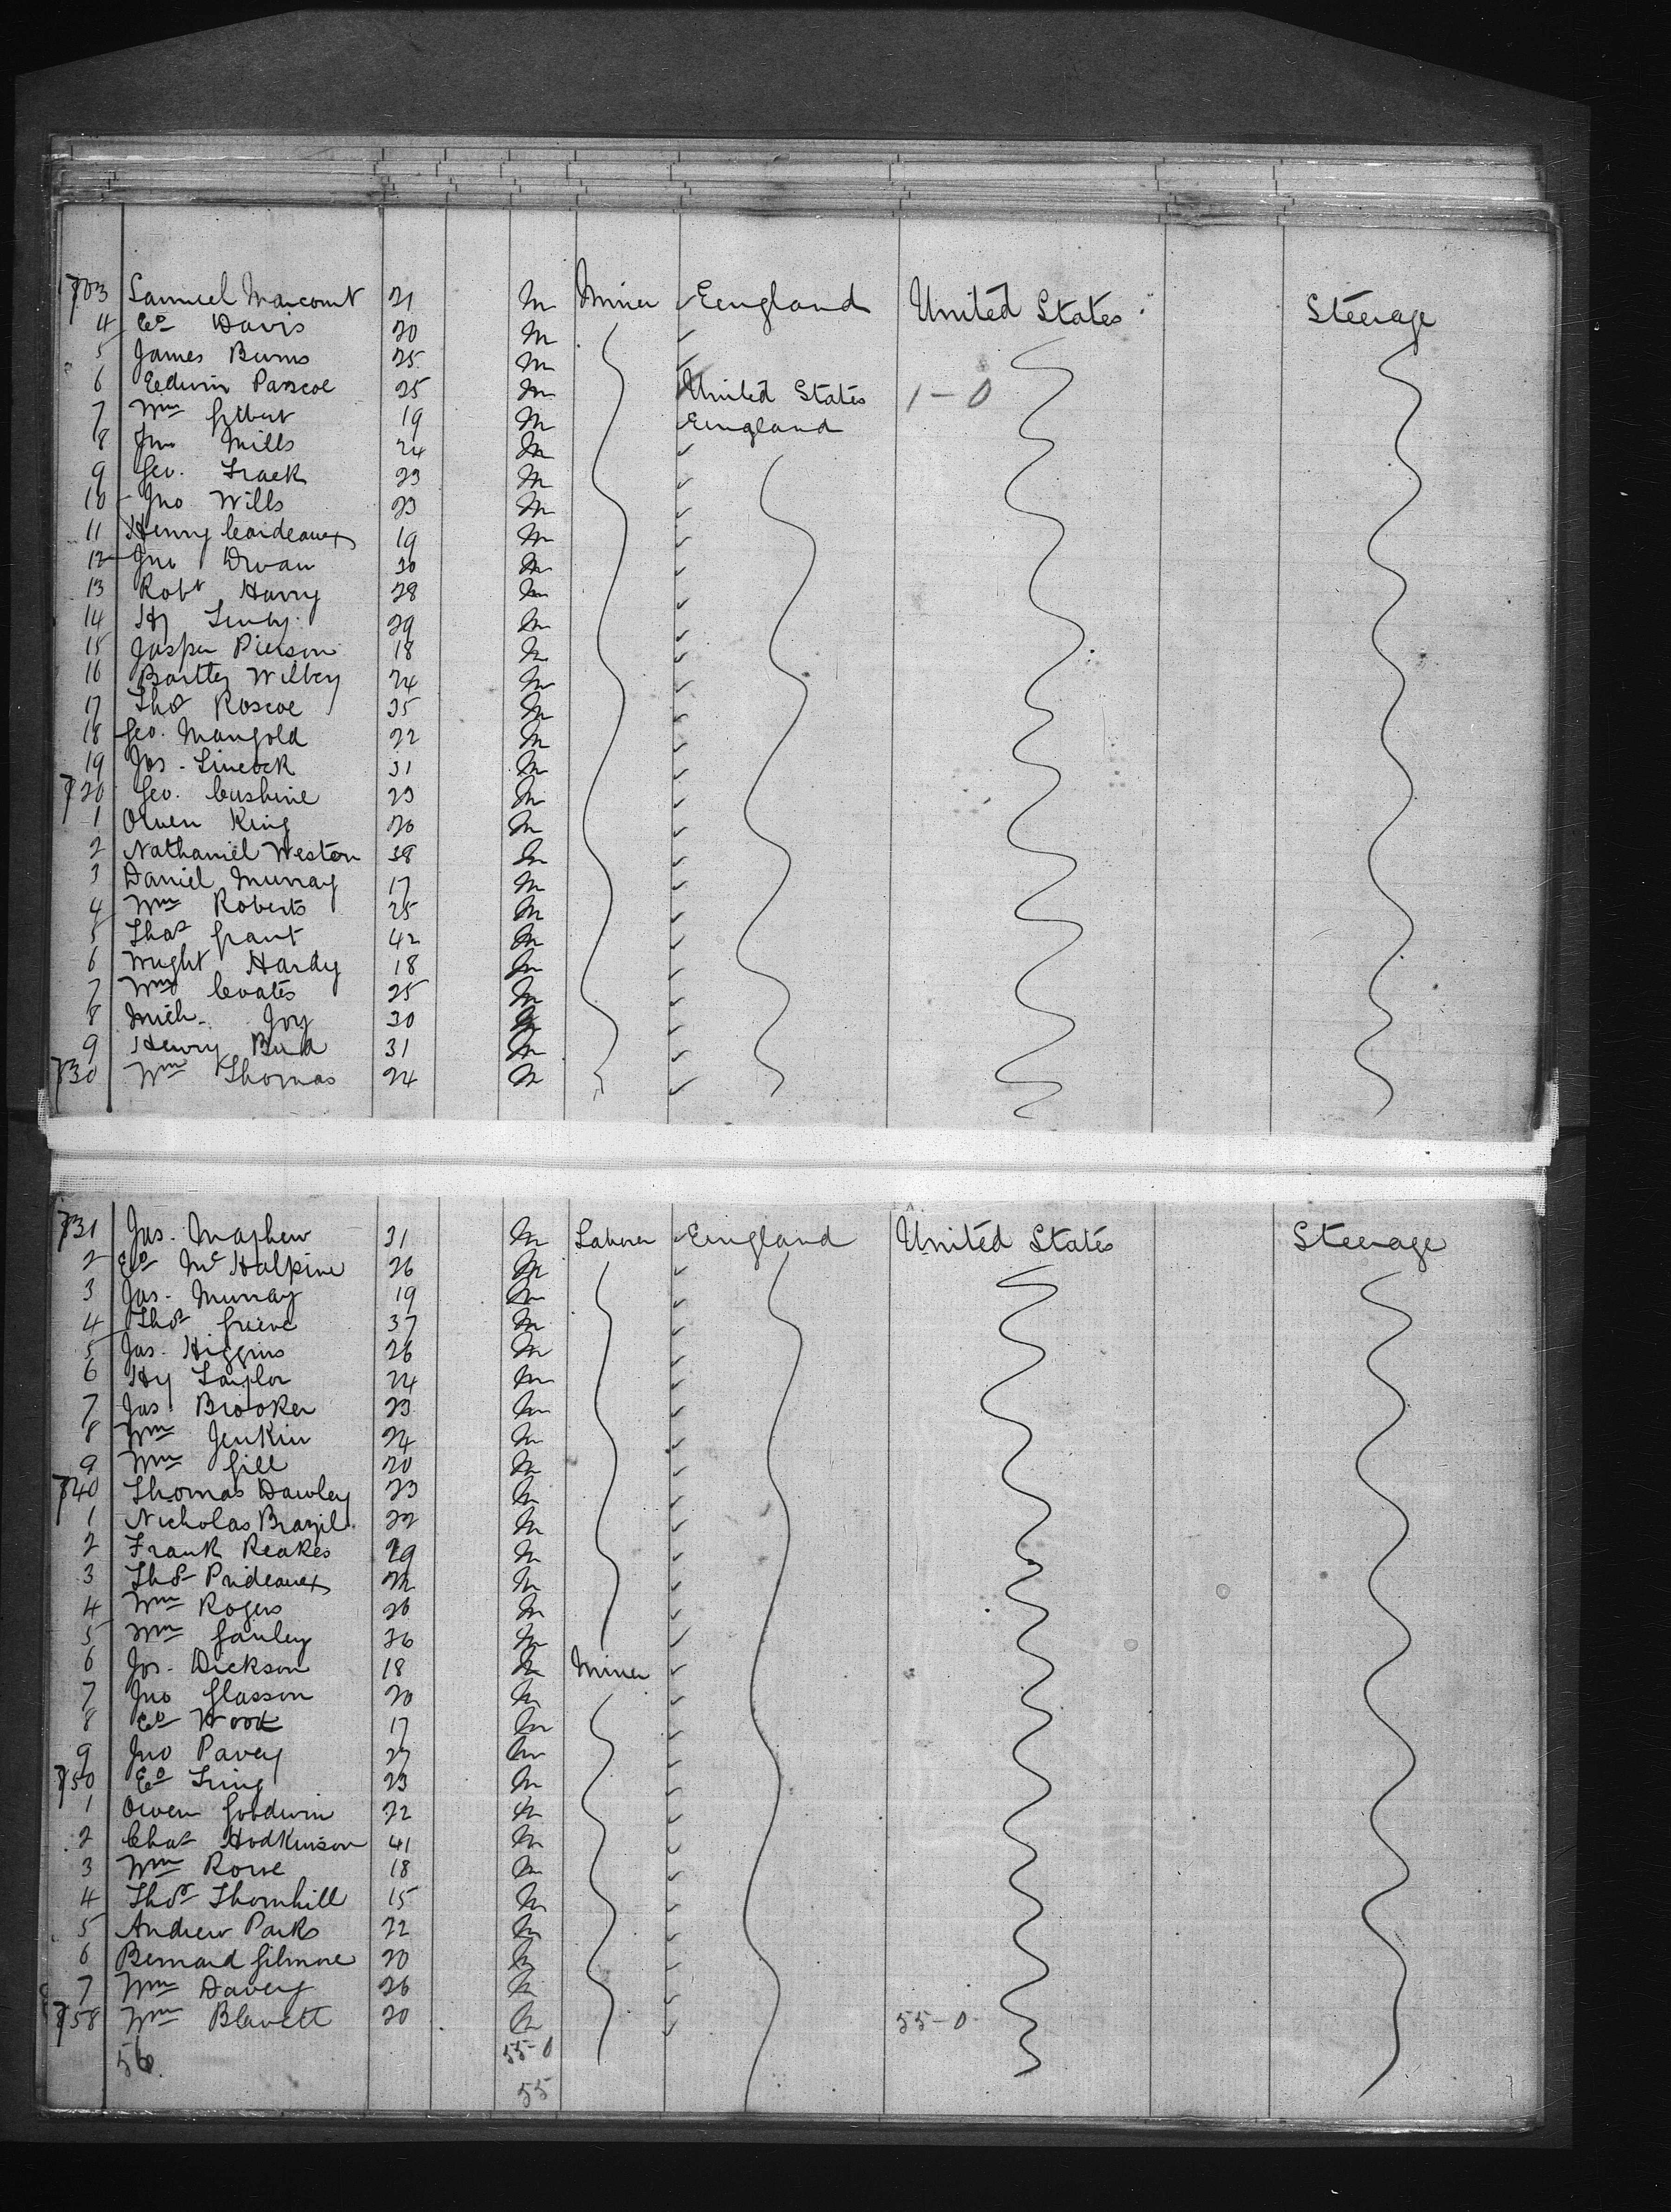 703 Samuel Marcount 21 M Miner England United States Steerage
4 Ed Davis 20 M
5 James Burns 25 M
6 Edwin Pascoe 25 M United States 1-0
7 Wm Gilbert 19 M England
8 Jno Mills 24 M
9 Geo. Track 23 M
10 Jno Wills 23 M
11 Henry Cardeaux 19 M
12 Jno Dwan 30 M
13 Robt Harry 28 M
14 Hy 29 M
15 Jasper Pierson 18 M
16 Bartley Wilbey 24 M
17 Thos Roscoe 35 M
18 Geo. Mangold 22 M
19 Jos. Simcock 31 M
720 Geo. Cushine 23 M
1 Owen King 26 M
2 Nathaniel Weston 38 M
3 Daniel Murray 17 M
4 Wm Roberts 25 M
5 Thos Grant 42 M
6 Wright Hardy 18 M
7 Wm Coates 25 M
8 Mich. Joy 30 M
9 Henry Bird 31 M
730 Wm Thomas 24 M
731 Jas. Maphew 31 M Laborer England United States Steerage
2 Ed McHalpine 26 M
3 Jas. Murray 19 M
4 Thos Grieve 37 M
5 Jas. Higgins 26 M
6 Hy Taylor 24 M
7 Jas Brooker 23 M
8 Wm Jenkin 24 M
9 Wm Gill 20 M
740 Thomas Dawley 23 M
1 Nicholas Brazil 22 M
2 Frank Reakes 29 M
3 Thos Prideaux 22 M
4 Wm Rogers 26 M
5 Wm Ganley 26 M
6 Jos. Dickson 18 M Miner
7 Jno Glasson 20 M
8 Ed Wood 17 M
9 Jno Pavey 27 M
750 Ed Tring 23 M
1 Owen Goodwin 22 M
2 Chas Hodkinson 41 M
3 Wm Rowe 18 M
4 Thos Thornhill 15 M
5 Andrew Parks 22 M
6 Bernard Gilmore 20 M
7 Wm Davey 26 M
758 Wm Blewett 20 M 55-0
56 55-0
55